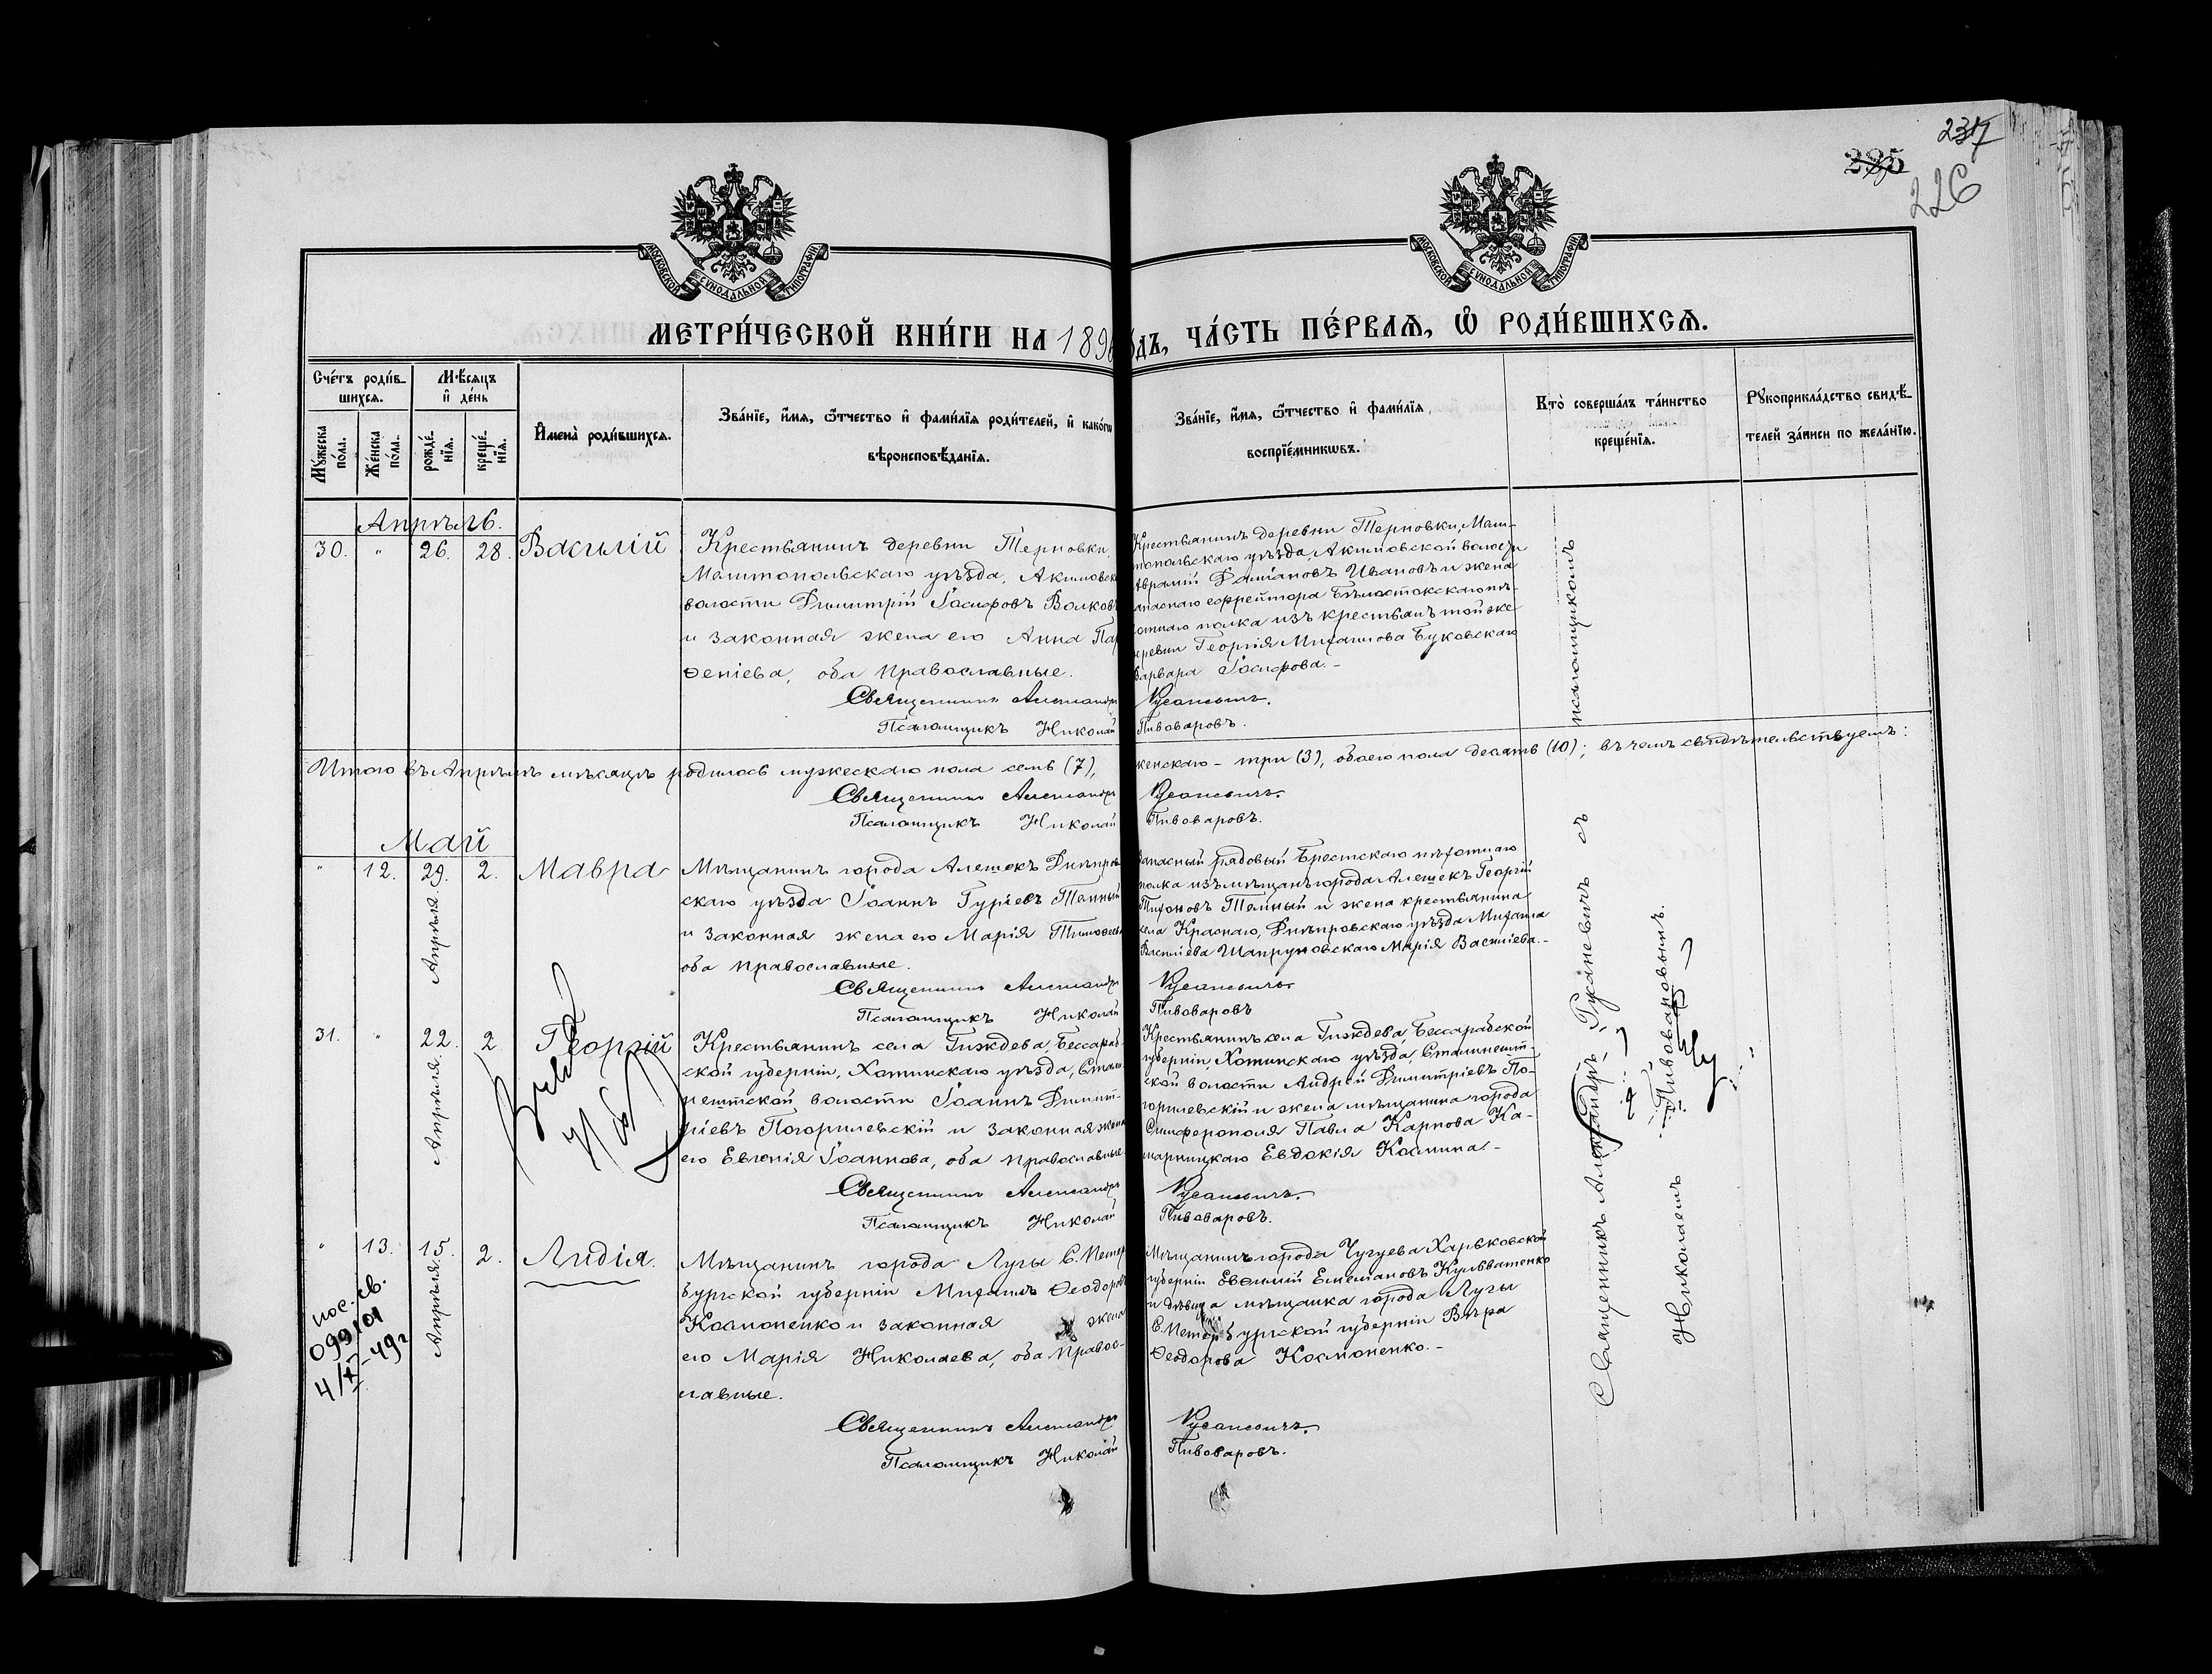 2317
225
226
МОСКОВСКОЙ СѴНОДАЛЬНОЙ ТИПОГРАФІИ
МОСКОВСКОЙ СѴНОДАЛЬНОЙ ТИПОГРАФІИ
МЕТРИ́ЧЕСКОЙ КНИ́ГИ НА 189 ОДЪ, ЧА́СТЬ ПЕ́РВАѦ, Ѽ РОДИ́ВШИХСѦ.
Сче́тъ роди́в-
шихсѧ.
Мѣ́сѧцъ
и҆ де́нь
Мꙋ́жеска по́ла.
Же́нска по́ла.
рожде́-нїѧ.
креще́-нїѧ.
И҆мена̀ роди́вшихсѧ.
Зва́нїе, и҆́мѧ, ѻ҆́тчество и҆ фами́лїѧ роди́телей, и҆ како́гѡ
вѣроисповѣ́данїѧ.
Зва́нїе, и҆́мѧ, ѻ҆́тчество и҆ фами́лїѧ
воспрїе́мникѡвъ.
Кто̀ соверша́лъ та́инство
креще́нїѧ.
Рꙋкоприкла́дство свидѣ́-
телей за́писи по жела́нїю.
Апрѣль.
30. " 26. 28. Василій
Крестьянинъ деревни Терновки,
Мелитопольскаго уѣзда, Акимовск
волости Димитрій Іосифовъ Волковъ
и законная жена его Анна Пар
ѳеніева, оба православные.
Священникъ Александръ
Псаломщикъ Николай
Крестьянинъ деревни Терновки, Мели-
топольскаго уѣзда, Акимовской волости
Аврамій Даміановъ Ивановъ и жена
запаснаго ефрейтора Бѣлостокскаго пѣ-
хотнаго полка изъ крестьянъ той же
деревни Георгія Михаилова Буковскаго
Варвара Іосифова.-
Русаневичъ.
Пивоваровъ.
Итого въ Апрѣлѣ мѣсяцѣ родилось мужескаго пола семь (7), женскаго - три (3), обоего пола десять (10); въ чемъ свидѣтельствуемъ:
Священникъ Александръ Русаневичъ.
Псаломщикъ Николай Пивоваровъ.
Май
" 12. 29. Апрѣля. 2. Мавра
Мѣщанинъ города Алешекъ Днѣпров
скаго уѣзда Іоаннъ Гуріевъ Темный
и законная жена его Марія Тимоѳеева
оба православные.
Священникъ Александръ
Псаломщикъ Николай
Запасный рядовый Брестскаго пѣхотнаго
полка изъ мѣщанъ города Алешекъ Георгій
Тифоновъ Темный и жена крестьянина
села Краснаго, Днѣпровскаго уѣзда Михаила
Василіева Шапруновскаго Марія Василіева.-
Русаневичъ.
Пивоваровъ
31. " 22. Апрѣля. 2. Георгій
Крестьянинъ села Гиждева, Бессараб-
ской губерніи, Хотинскаго уѣзда, Стали-
нештской волости Іоаннъ Димит-
ріевъ Погорилевскій и законная жена
его Евгенія Іоаннова, оба православные.
Священникъ Александръ
Псаломщикъ Николай
Крестьянинъ села Гиждева, Бессарабской
губерніи, Хотинскаго уѣзда, Сталинешт-
ской волости Андрей Димитріевъ По-
горилевскій и жена мѣщанина города
Симферополя Павла Карпова Ка-
шарницкаго Евдокія Космина.-
Русаневичъ.
Пивоваровъ.
" 13. 15. Апрѣля. 2. Лидія.
пос. св.
099101
4/XI-49г
Мѣщанинъ города Луги С. Петер
бургской губерніи Михаилъ Ѳеодоровъ
Космоненко и законная жена
его Марія Николаева, оба правос-
лавные.
Священникъ Александръ
Псаломщикъ Николай
Мѣщанинъ города Чугуева Харьковской
губерніи Евѳимій Емеліановъ Кульбатенко
и дѣвица мѣщанка города Луги
С. Петербургской губерніи Вѣра
Ѳеодорова Космоненко.-
Русаневичъ.
Пивоваровъ.
Священникъ Александръ Русаневичъ съ псаломщикомъ
Николаемъ Пивоваровымъ.